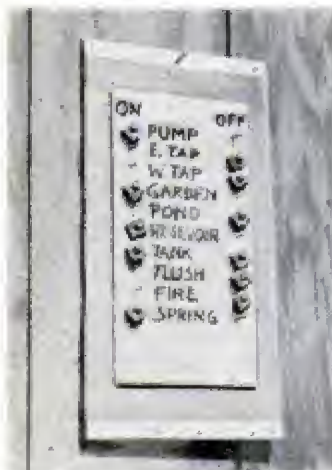 ON OFF
PUMP
E. TAP
W. TAP
GARDEN
POND
RESEVOIR
TANK
FLUSH
FIRE
SPRING